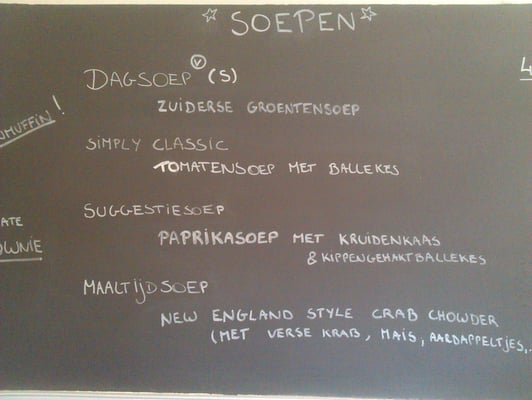 ☆ SOEPEN ☆
DAGSOEP Ⓥ (S)
ZUIDERSE GROENTENSOEP
SIMPLY CLASSIC
TOMATENSOEP MET BALLEKES
SUGGESTIESOEP
PAPRIKASOEP MET KRUIDENKAAS
& KIPPENGEHAKTBALLEKES
MAALTIJDSOEP
NEW ENGLAND STYLE CRAB CHOWDER
(MET VERSE KRAB, MAIS, AARDAPPELTJES,..